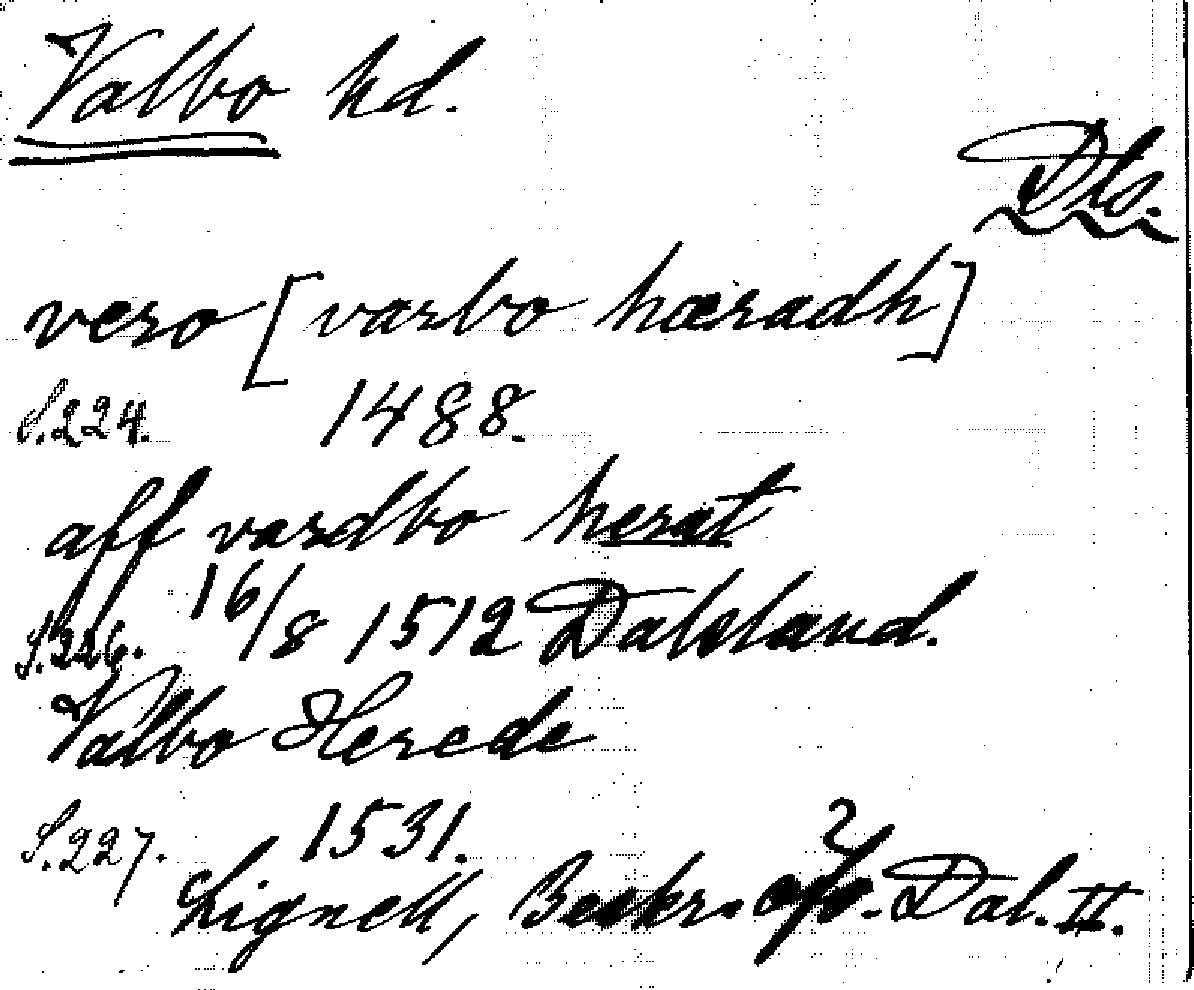 Valbo hd.
Dls.
vero [varbo hæradh]
S.224. 1488.
aff vardbo herat
S.226. 16/8 1512 Dalsland.
Valbo Herede
S.227. 1531.
Lignell, Beskr. Dal. II.